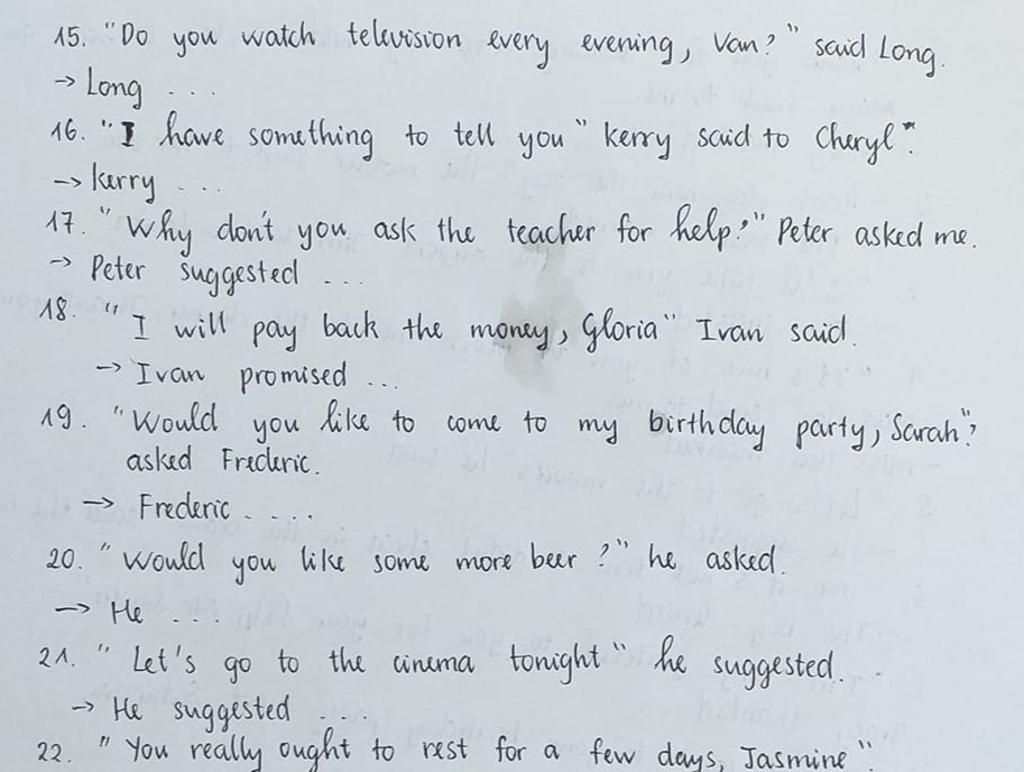 15. "Do you watch television every evening, Van?" said Long.
→ Long ...
16. "I have something to tell you" Kerry said to Cheryl".
→ Kerry ...
17. "Why don't you ask the teacher for help?" Peter asked me.
→ Peter suggested ...
18. "I will pay back the money, Gloria" Ivan said.
→ Ivan promised ...
19. "Would you like to come to my birthday party, Sarah?"
asked Frederic.
→ Frederic ....
20. "Would you like some more beer?" he asked.
→ He ...
21. "Let's go to the cinema tonight" he suggested.
→ He suggested ...
22. "You really ought to rest for a few days, Jasmine".